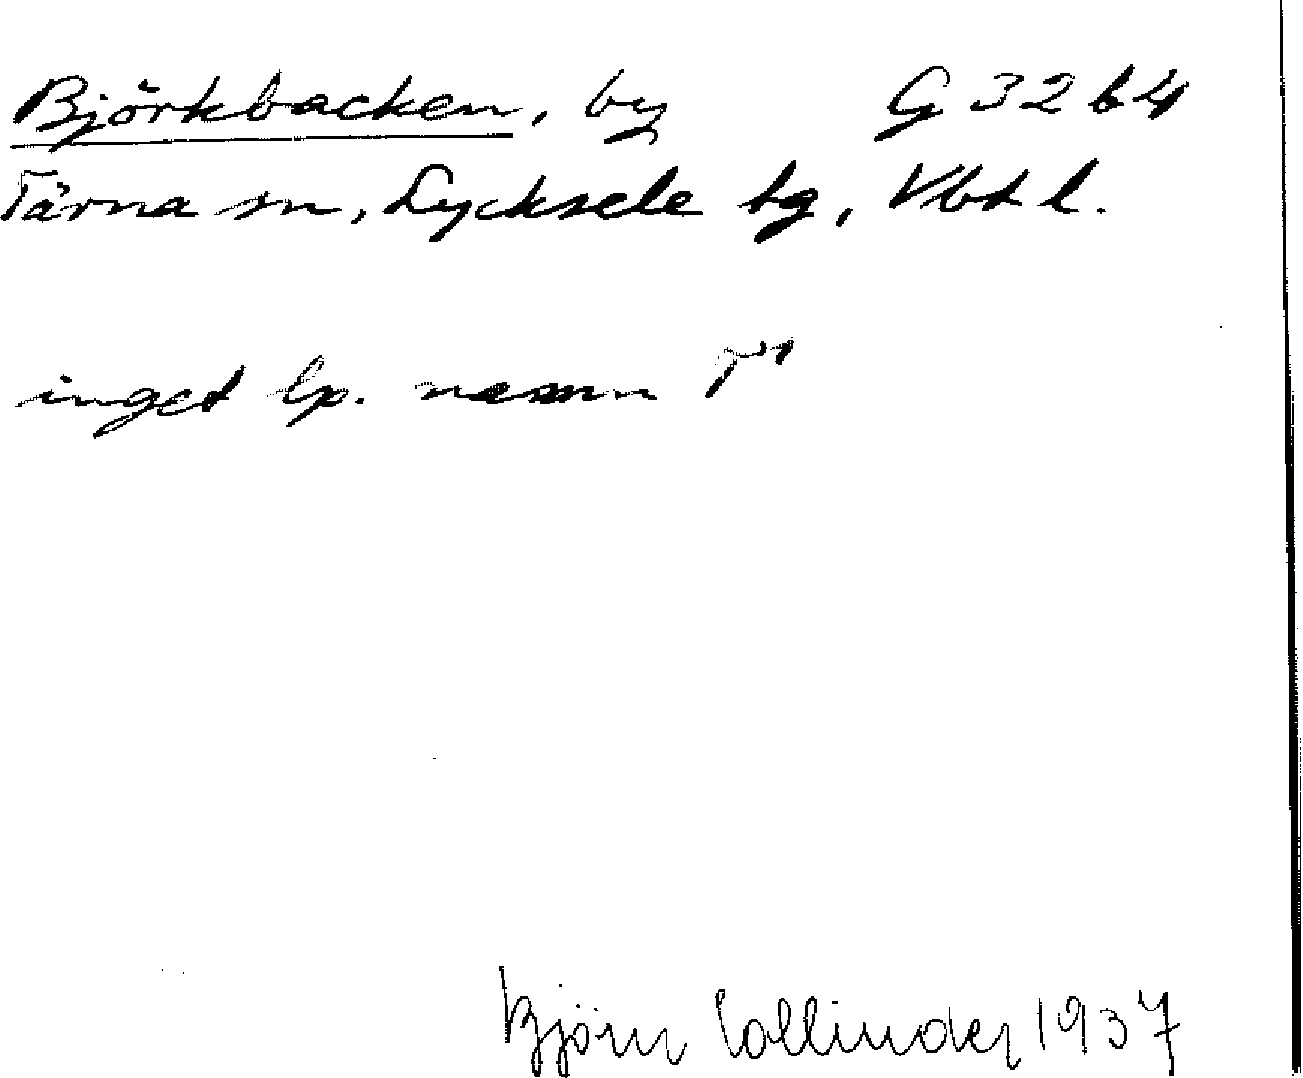 Björkbacken, by G 32 b 4
Tärna sn, Lycksele tg, Vbt l.
inget lp. namn
Björn Collinder 1937